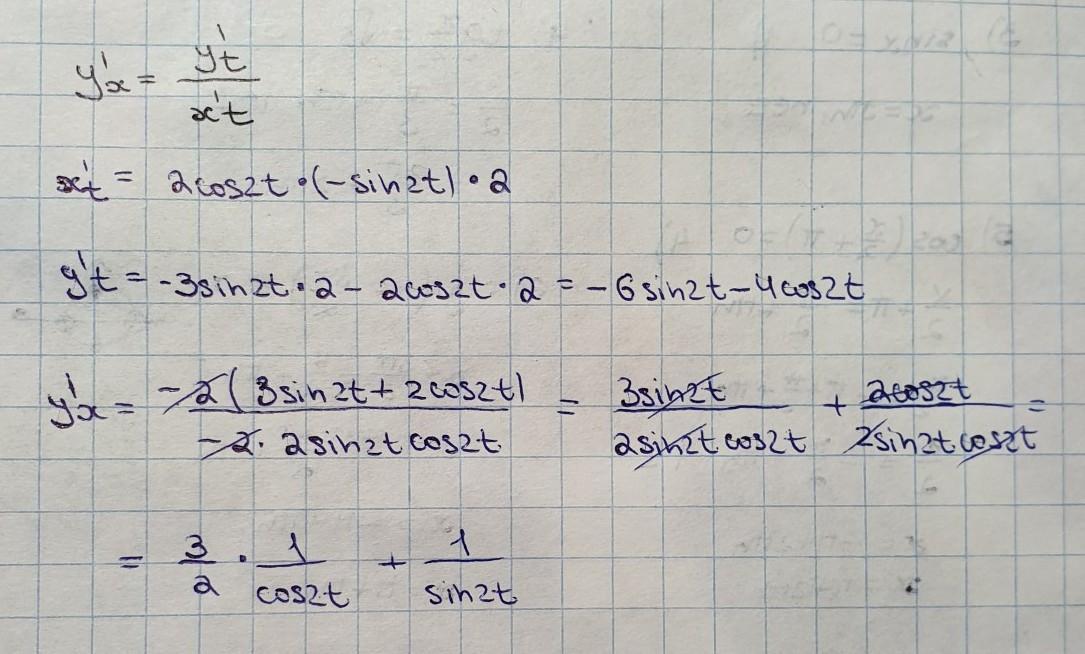 y'x = y't / x't
x't = 2cos2t·(-sin2t)·2
y't = -3sin2t·2 - 2cos2t·2 = -6sin2t - 4cos2t
y'x = -2(3sin2t + 2cos2t) / -2·2sin2t cos2t = 3sin2t / 2sin2t cos2t + 2cos2t / 2sin2t cos2t =
= 3/2 · 1/cos2t + 1/sin2t